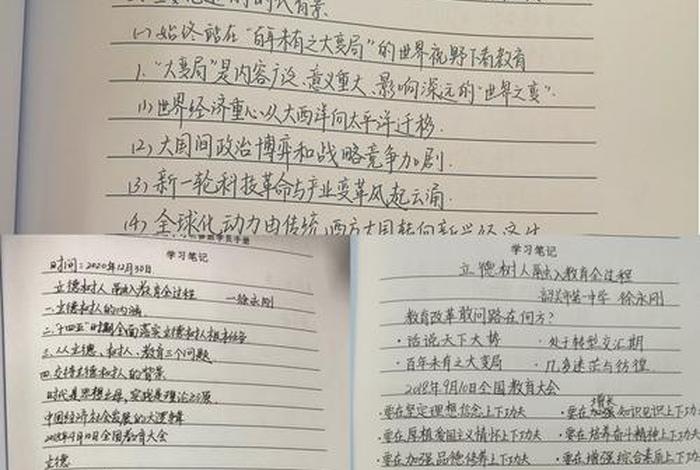 的时代背景
(一)始终站在“百年未有之大变局”的世界视野下看教育
1、“大变局”是内容广泛、意义重大、影响深远的“世界之变”.
(1)世界经济重心从大西洋向太平洋迁移.
(2)大国间政治博弈和战略竞争加剧.
(3)新一轮科技革命与产业变革风起云涌.
(4)全球化动力由传统西方大国转向新兴经济体
学员手册
学习笔记
时间:2020年12月30日
立德树人融入教育全过程 —徐永刚
一.立德树人的内涵.
二.“十四五”时期全面落实立德树人根本任务
三.从立德、树人、教育三个问题
四.立德树人的背景
时代是思想之母,实践是理论之源.
中国经济社会发展的大逻辑
2018年9月10日全国教育大会
立德
学习笔记
立德树人融入教育全过程
第一中学 徐永刚
教育改革敢问路在何方?
·话说天下大势 ·处于转型交汇期
·百年未有之大变局 ·几多迷茫与彷徨
2018年9月10日全国教育大会
·要在坚定理想信念上下功夫 ·要在增长知识见识上下功夫
·要在厚植爱国主义情怀上下功夫 ·要在培养奋斗精神上下功夫
·要在加强品德修养上下功夫 ·要在增强综合素质上下功夫